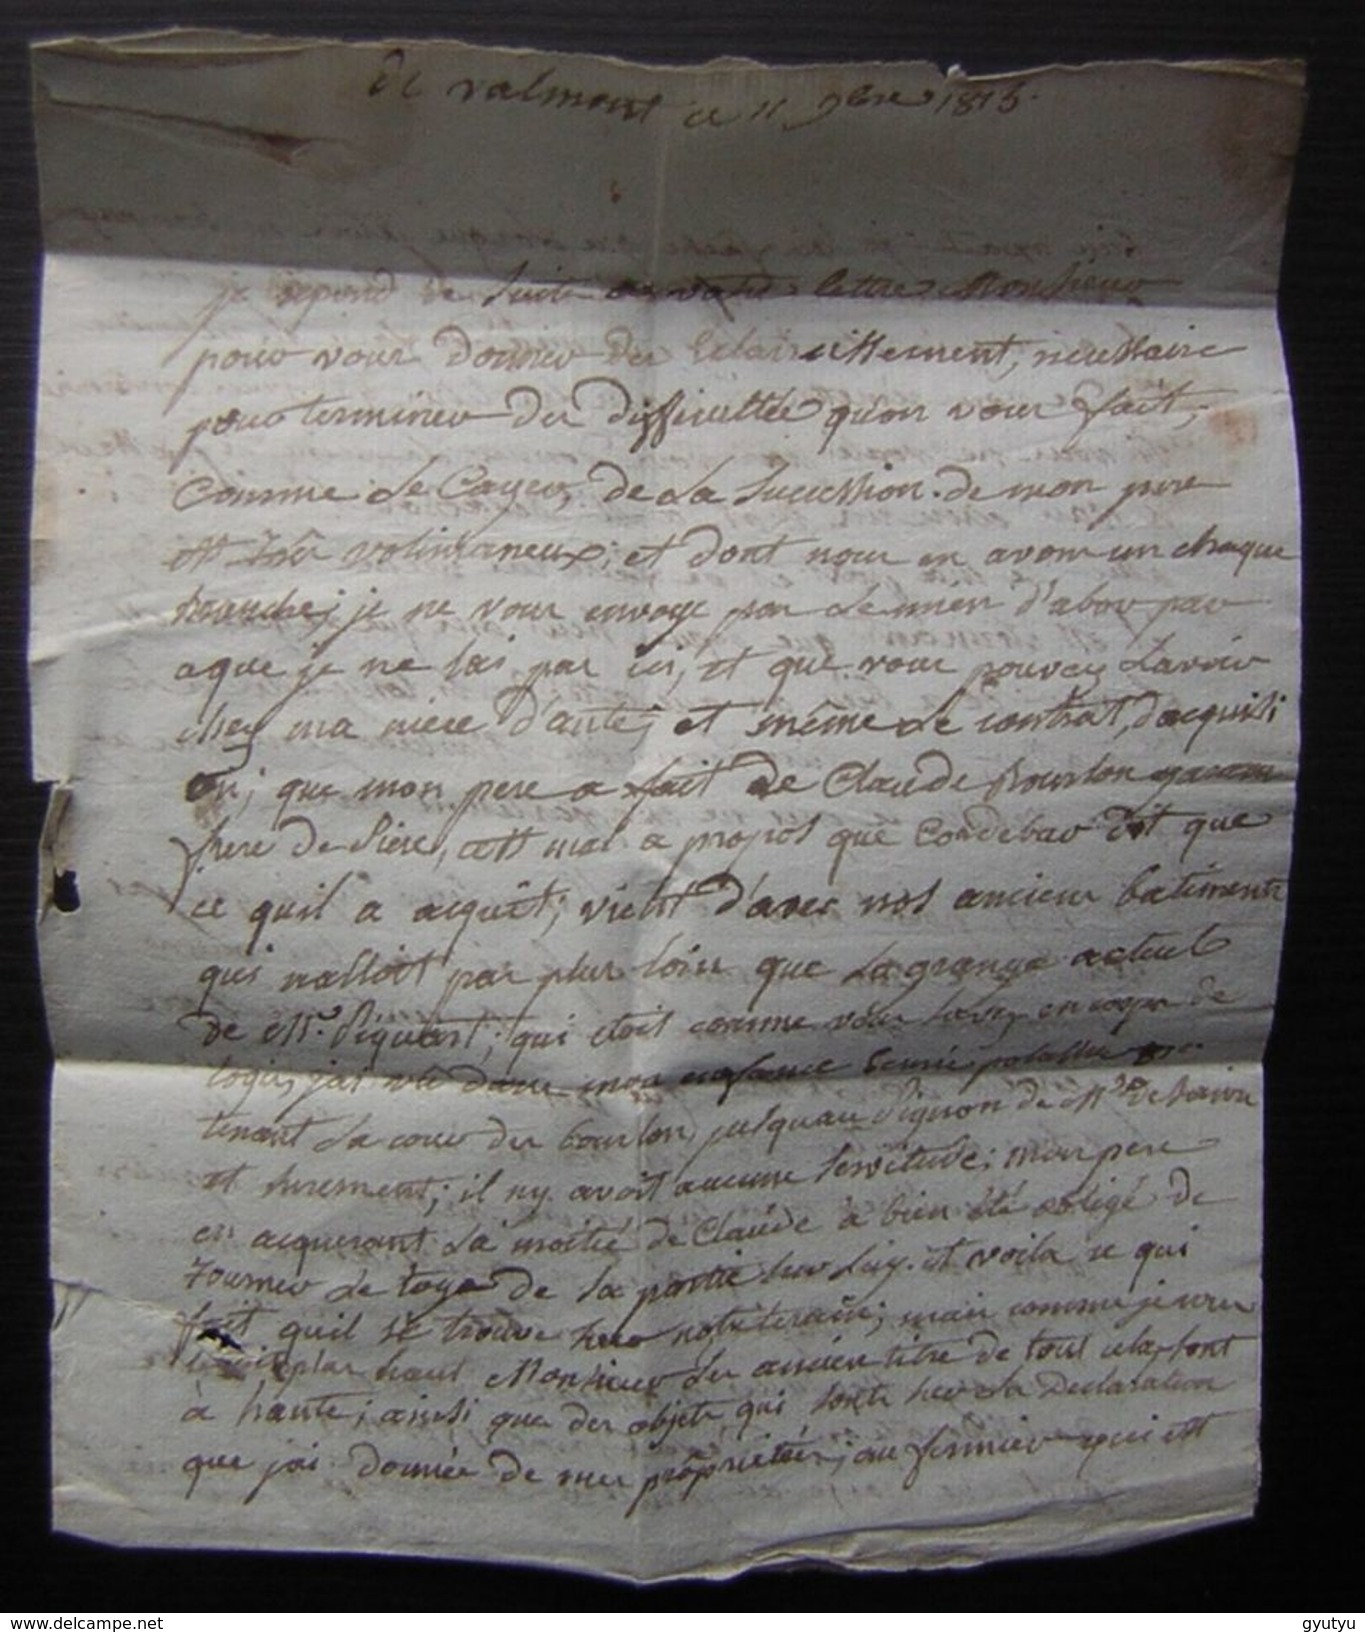 de valmont ce 11 9bre 1815.
je repond de suite a votre lettre Monsieur
pour vour donner der Eclaircissement, nécessaire
pour terminer der difficultée qu'on vour fait,
Comme Le Cayer, de La Succession de mon pere
est volumineux; et dont nour en avom un chaque
branche; je ne vour envoye par Le mien d'abor par
aque je ne lai par ici, et que vour pouvez Lavoir
chez ma niece d'ante; et même Le contrat, dacquisiti
on; que mon pere a fait de Claude Bourlon
frere de Piere, cest mal a propos que Condebar dit que
ce quil a acquit; vient d'avec nos ancienr batimentr
qui nalloit par plur loin que La grange actuel
de Mr. Piquart; qui etoit comme vour Lavez en corpr de
logis, jai vu dans mon enfance
tenant La cour der bourlon, jusquau Pignon de Mde de
et surement; il ny avoit aucune servitude; mon pere
en acquerant La moitié de Claude à bien été obligé de
tourner Le toya de La partie sur Luy. et voila ce qui
fait quil se trouve sur notre terain; mair comme je vour
plur haut Monsieur Ler ancien titre de tout cela, sont
à hante; ainsi que der objetr, qui sont sur La Declaration
que jai donnée de mer propriétéer; au fermier qui est
www.delcampe.net
gyutyu